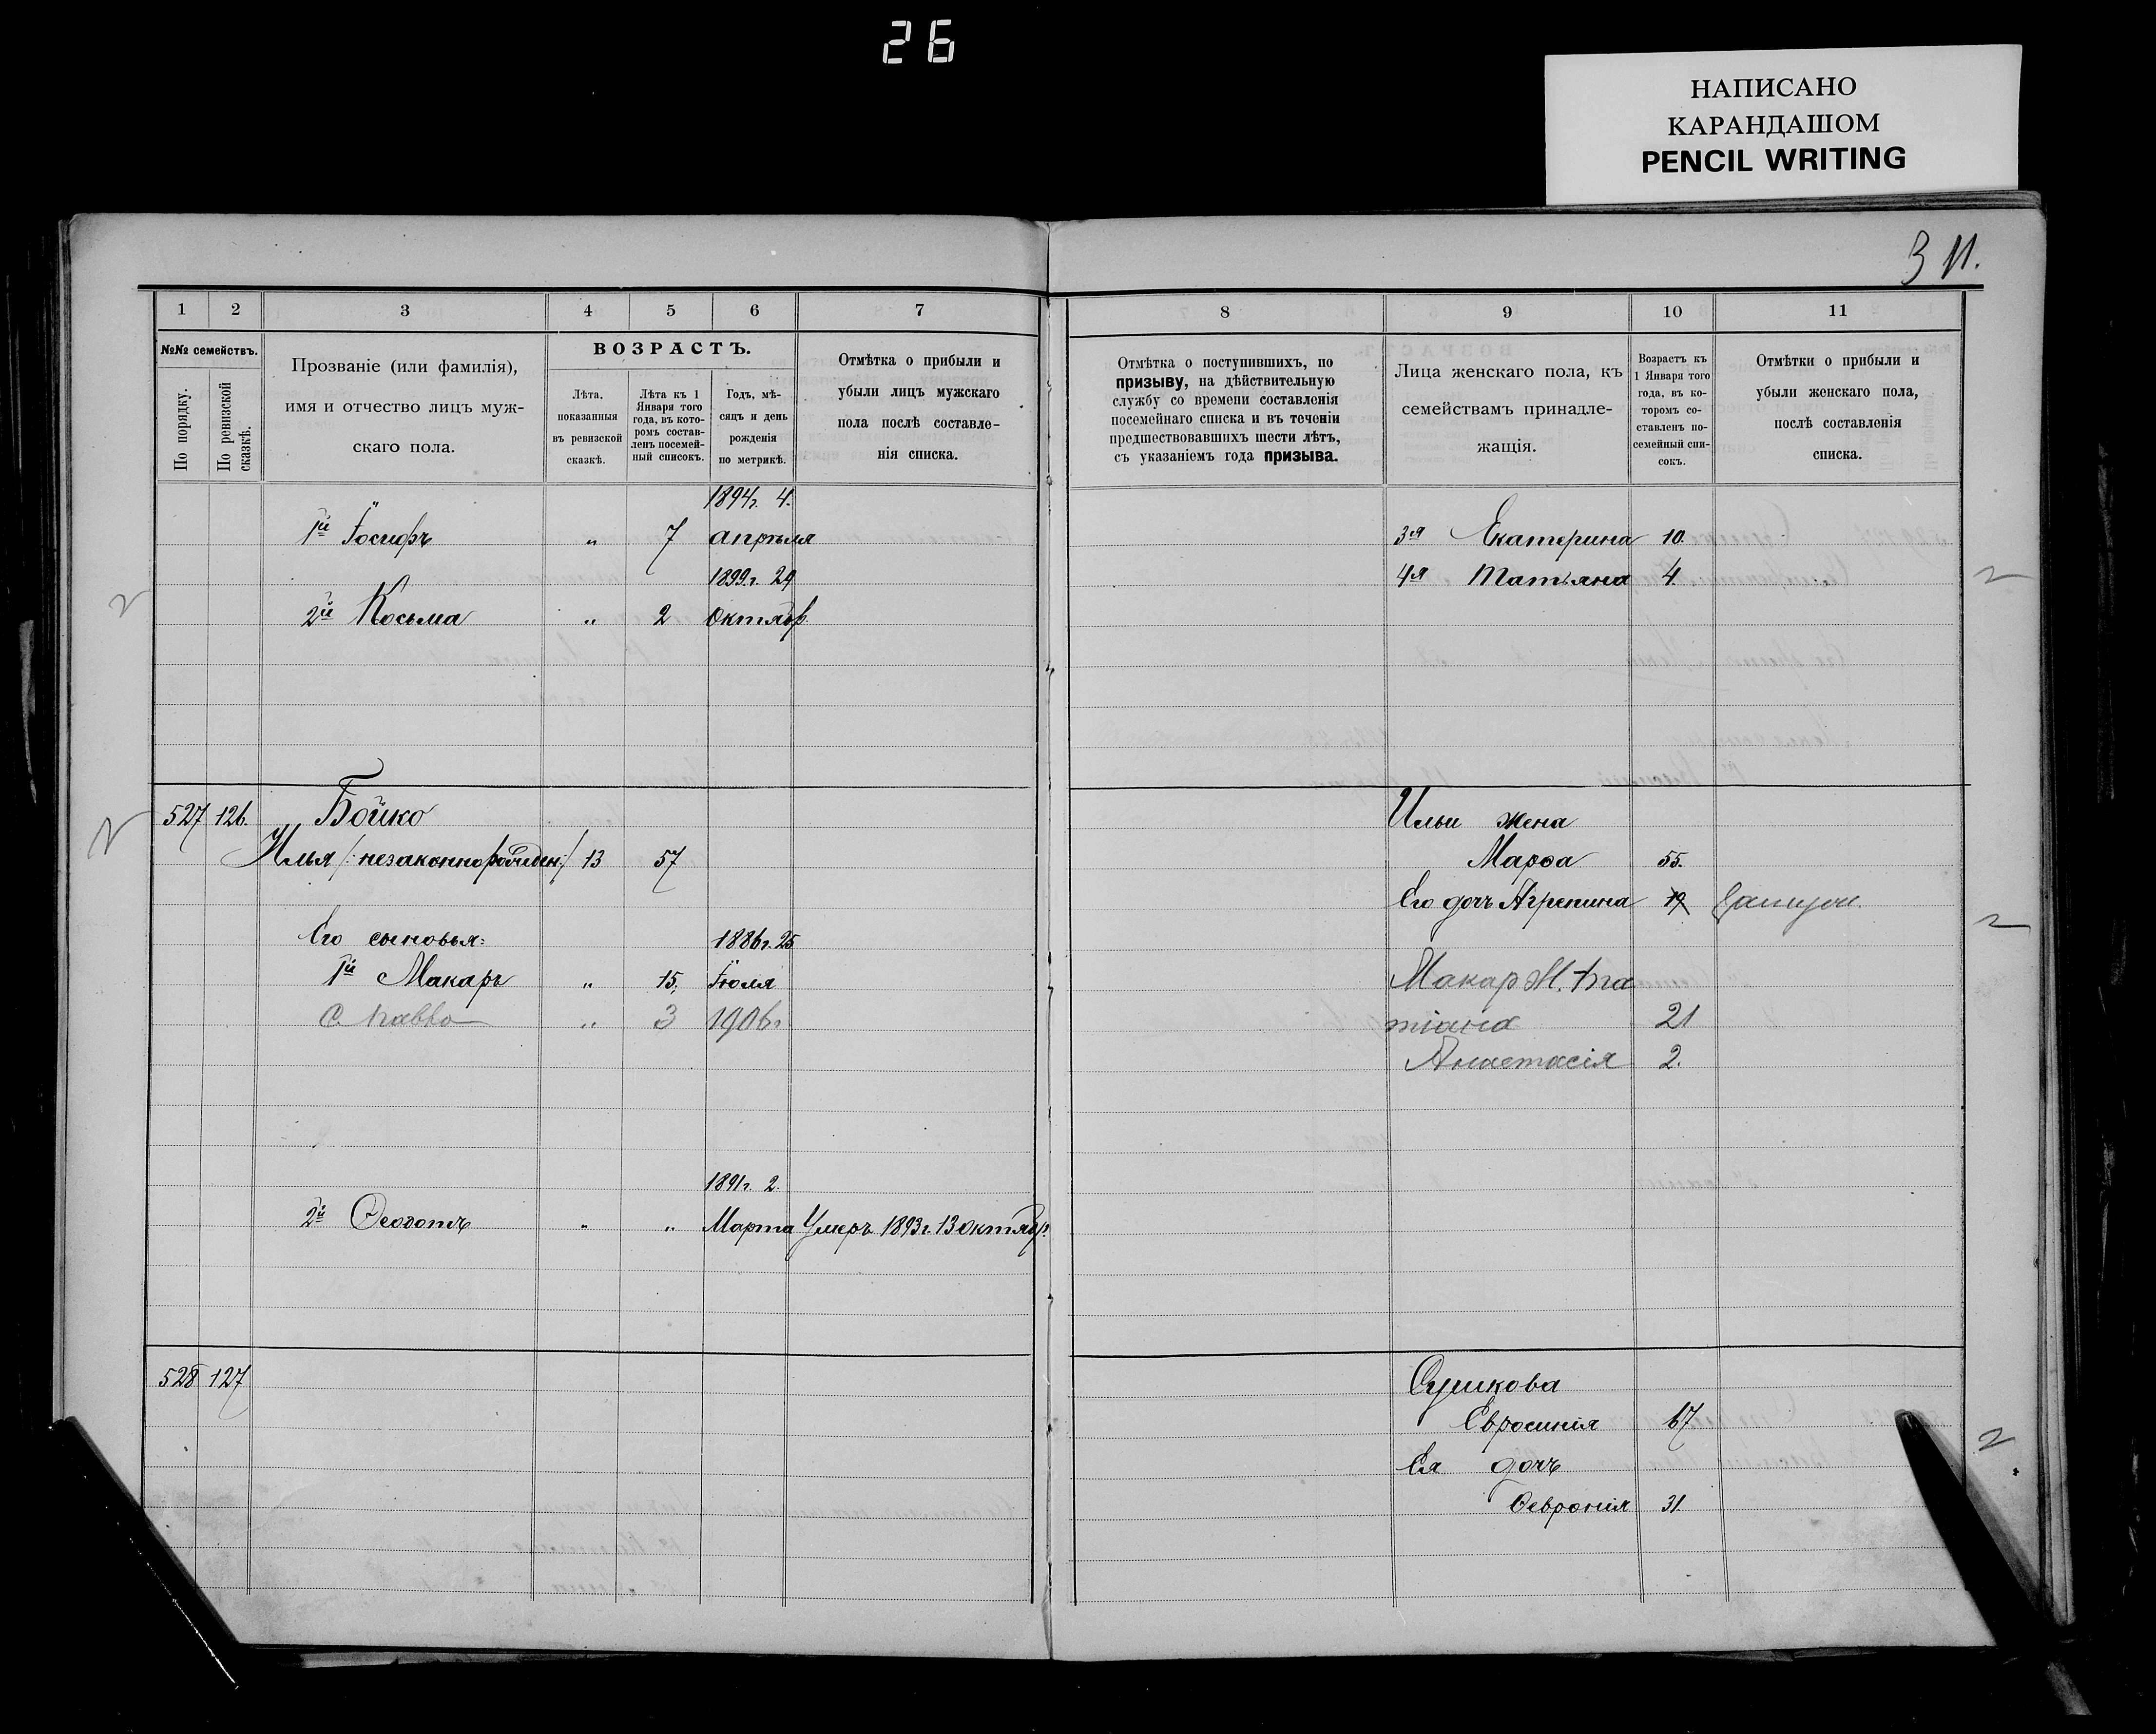 26
НАПИСАНО
КАРАНДАШОМ
PENCIL WRITING
311.
1 2 3 4 5 6 7 8 9 10 11
№№ семействъ.
По порядку.
По ревизской сказкѣ.
Прозваніе (или фамилія),
имя и отчество лицъ муж-
скаго пола.
ВОЗРАСТЪ.
Лѣта,
показанныя
въ ревизской
сказкѣ.
Лѣта къ 1
Января того
года, въ кото-
ромъ состав-
ленъ посемей-
ный списокъ.
Годъ, мѣ-
сяцъ и день
рожденія
по метрикѣ.
Отмѣтка о прибыли и
убыли лицъ мужскаго
пола послѣ составле-
нія списка.
Отмѣтка о поступившихъ, по
призыву, на дѣйствительную
службу со времени составленія
посемейнаго списка и въ теченіи
предшествовавшихъ шести лѣтъ,
съ указаніемъ года призыва.
Лица женскаго пола, къ
семействамъ принадле-
жащія.
Возрастъ къ
1 Января того
года, въ ко-
торомъ со-
ставленъ по-
семейный спи-
сокъ.
Отмѣтки о прибыли и
убыли женскаго пола,
послѣ составленія
списка.
1894г. 4.
1й Іосифъ „ 7 апрѣля 3я Екатерина 10.
1899.г. 29 4я Татьяна 4.
2й Косьма „ 2 Октябр.
527 126. Бойко Ильи жена
Илья /:незаконнорожден:/ 13 57 Марѳа 55.
Его дочь Агрепина 19
Его сыновья: 1886г. 25
1й Макаръ „ 15. Іюля Макар Ж. Та
С. Павло „ 3 1906г. тіана 21
Анастасія 2.
1891г. 2.
2й Ѳеодотъ „ „ Марта Умеръ 1893г. 13 октябр.
528 127 Сушкова
Евросинія 67
Ея дочь
Ѳевронія 31.